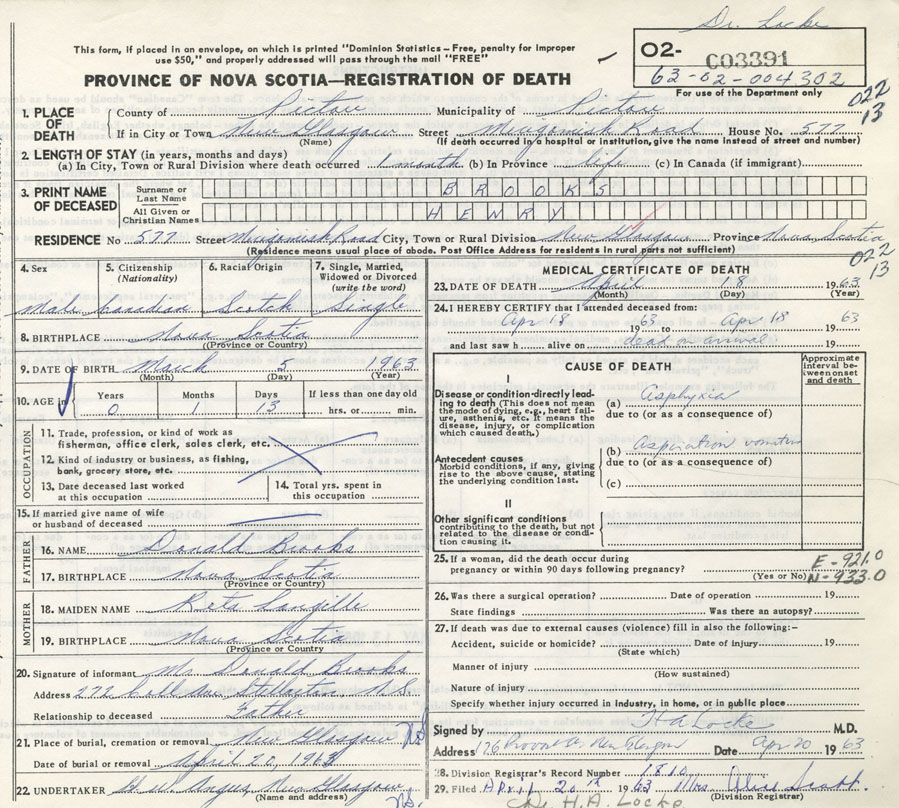 Dr. Locke
This form, if placed in an envelope, on which is printed "Dominion Statistics – Free, penalty for improper
use $50," and properly addressed will pass through the mail "FREE"
02- C03391
63-02-004302
For use of the Department only
PROVINCE OF NOVA SCOTIA—REGISTRATION OF DEATH
022
13
1. PLACE OF DEATH
County of Pictou Municipality of Pictou
If in City or Town New Glasgow Street Merigomish Road House No. 577
(Name) (If death occurred in a hospital or institution, give the name instead of street and number)
2. LENGTH OF STAY (in years, months and days)
(a) In City, Town or Rural Division where death occurred 1 month (b) In Province life (c) In Canada (if immigrant)
3. PRINT NAME OF DECEASED
Surname or Last Name BROOKS
All Given or Christian Names HENRY
RESIDENCE No 577 Street Merigomish Road City, Town or Rural Division New Glasgow Province Nova Scotia
(Residence means usual place of abode. Post Office Address for residents in rural parts not sufficient)
022
13
4. Sex 5. Citizenship (Nationality) 6. Racial Origin 7. Single, Married, Widowed or Divorced (write the word)
Male Canadian Scotch Single
8. BIRTHPLACE Nova Scotia
(Province or Country)
9. DATE OF BIRTH March 5 1963
(Month) (Day) (Year)
10. AGE in Years Months Days If less than one day old
0 1 13 hrs. or min.
OCCUPATION
11. Trade, profession, or kind of work as
fisherman, office clerk, sales clerk, etc.
12. Kind of industry or business, as fishing,
bank, grocery store, etc.
13. Date deceased last worked
at this occupation
14. Total yrs. spent in
this occupation
15. If married give name of wife
or husband of deceased
FATHER
16. NAME Donald Brooks
17. BIRTHPLACE Nova Scotia
(Province or Country)
MOTHER
18. MAIDEN NAME Langille
19. BIRTHPLACE Nova Scotia
(Province or Country)
20. Signature of informant Mr Donald Brooks
Address 272 Stellarton, N.S.
Relationship to deceased Father
21. Place of burial, cremation or removal New Glasgow NS
Date of burial or removal April 20, 1963
22. UNDERTAKER H W Angus, New Glasgow
(Name and address) NS.
MEDICAL CERTIFICATE OF DEATH
23. DATE OF DEATH April 18 1963
(Month) (Day) (Year)
24. I HEREBY CERTIFY that I attended deceased from:
Apr 18 1963 to Apr 18 1963
and last saw h alive on dead on arrival 19
CAUSE OF DEATH
Approximate interval between onset and death
I
Disease or condition directly leading
to death (This does not mean
the mode of dying, e.g., heart failure,
asthenia, etc. It means the
disease, injury, or complication
which caused death.)
(a) Asphyxia
due to (or as a consequence of)
Antecedent causes
Morbid conditions, if any, giving
rise to the above cause, stating
the underlying condition last.
(b) Aspiration vomitus
due to (or as a consequence of)
(c)
II
Other significant conditions
contributing to the death, but not
related to the disease or condition
causing it.
25. If a woman, did the death occur during
pregnancy or within 90 days following pregnancy?
(Yes or No)
E-921.0
N-933.0
26. Was there a surgical operation? Date of operation 19
State findings Was there an autopsy?
27. If death was due to external causes (violence) fill in also the following:–
Accident, suicide or homicide? Date of injury 19
(State which)
Manner of injury
(How sustained)
Nature of injury
Specify whether injury occurred in industry, in home, or in public place
Signed by H A Locke M.D.
Address 126 Provost St New Glasgow Date Apr 20 1963
28. Division Registrar's Record Number 1810
29. Filed April 20 1963
(Division Registrar)
Dr. H.A. Locke